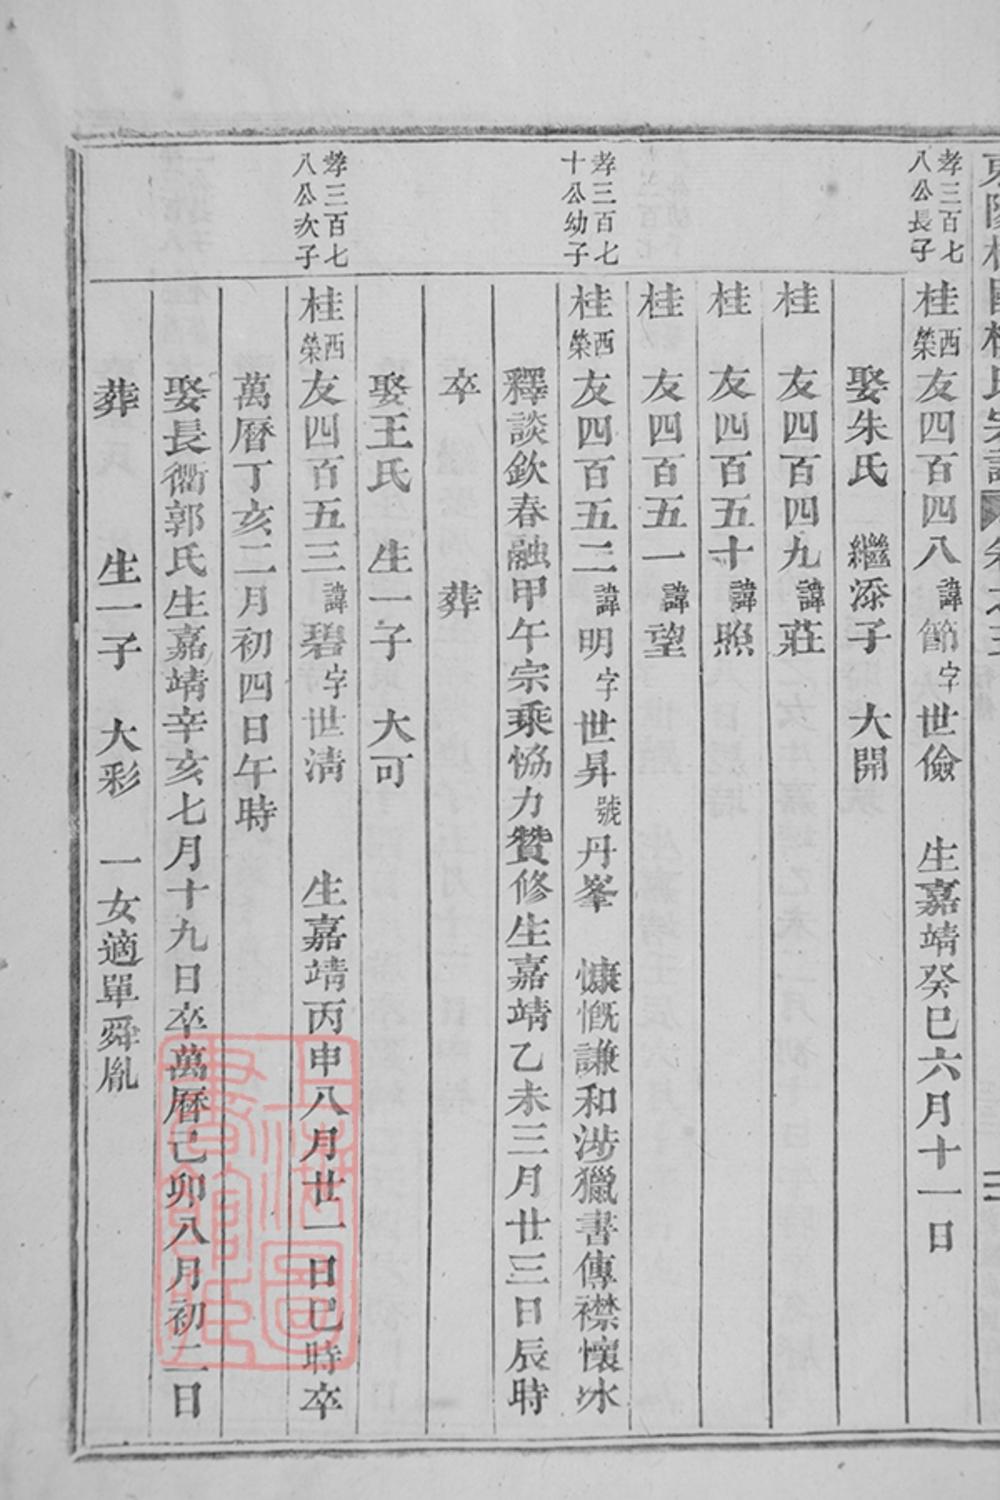 孝三百七
八公長子
桂西榮友四百四八諱節字世儉 生嘉靖癸巳六月十一日
娶朱氏 繼添子 大開
桂 友四百四九諱莊
桂 友四百五十諱照
桂 友四百五一諱望
孝三百七
十公幼子
桂西榮友四百五二諱明字世昇號丹峯 慷慨謙和涉獵書傳襟懷冰
釋談欽春融甲午宗乘恊力贊修生嘉靖乙未三月廿三日辰時
卒 葬
娶王氏 生一子 大可
孝三百七
八公次子
桂西榮友四百五三諱碧字世清 生嘉靖丙申八月廿一日巳時卒
萬曆丁亥二月初四日午時
娶長衢郭氏生嘉靖辛亥七月十九日卒萬曆己卯八月初二日
葬 生一子 大彩 一女適單舜胤
上海圖書館藏